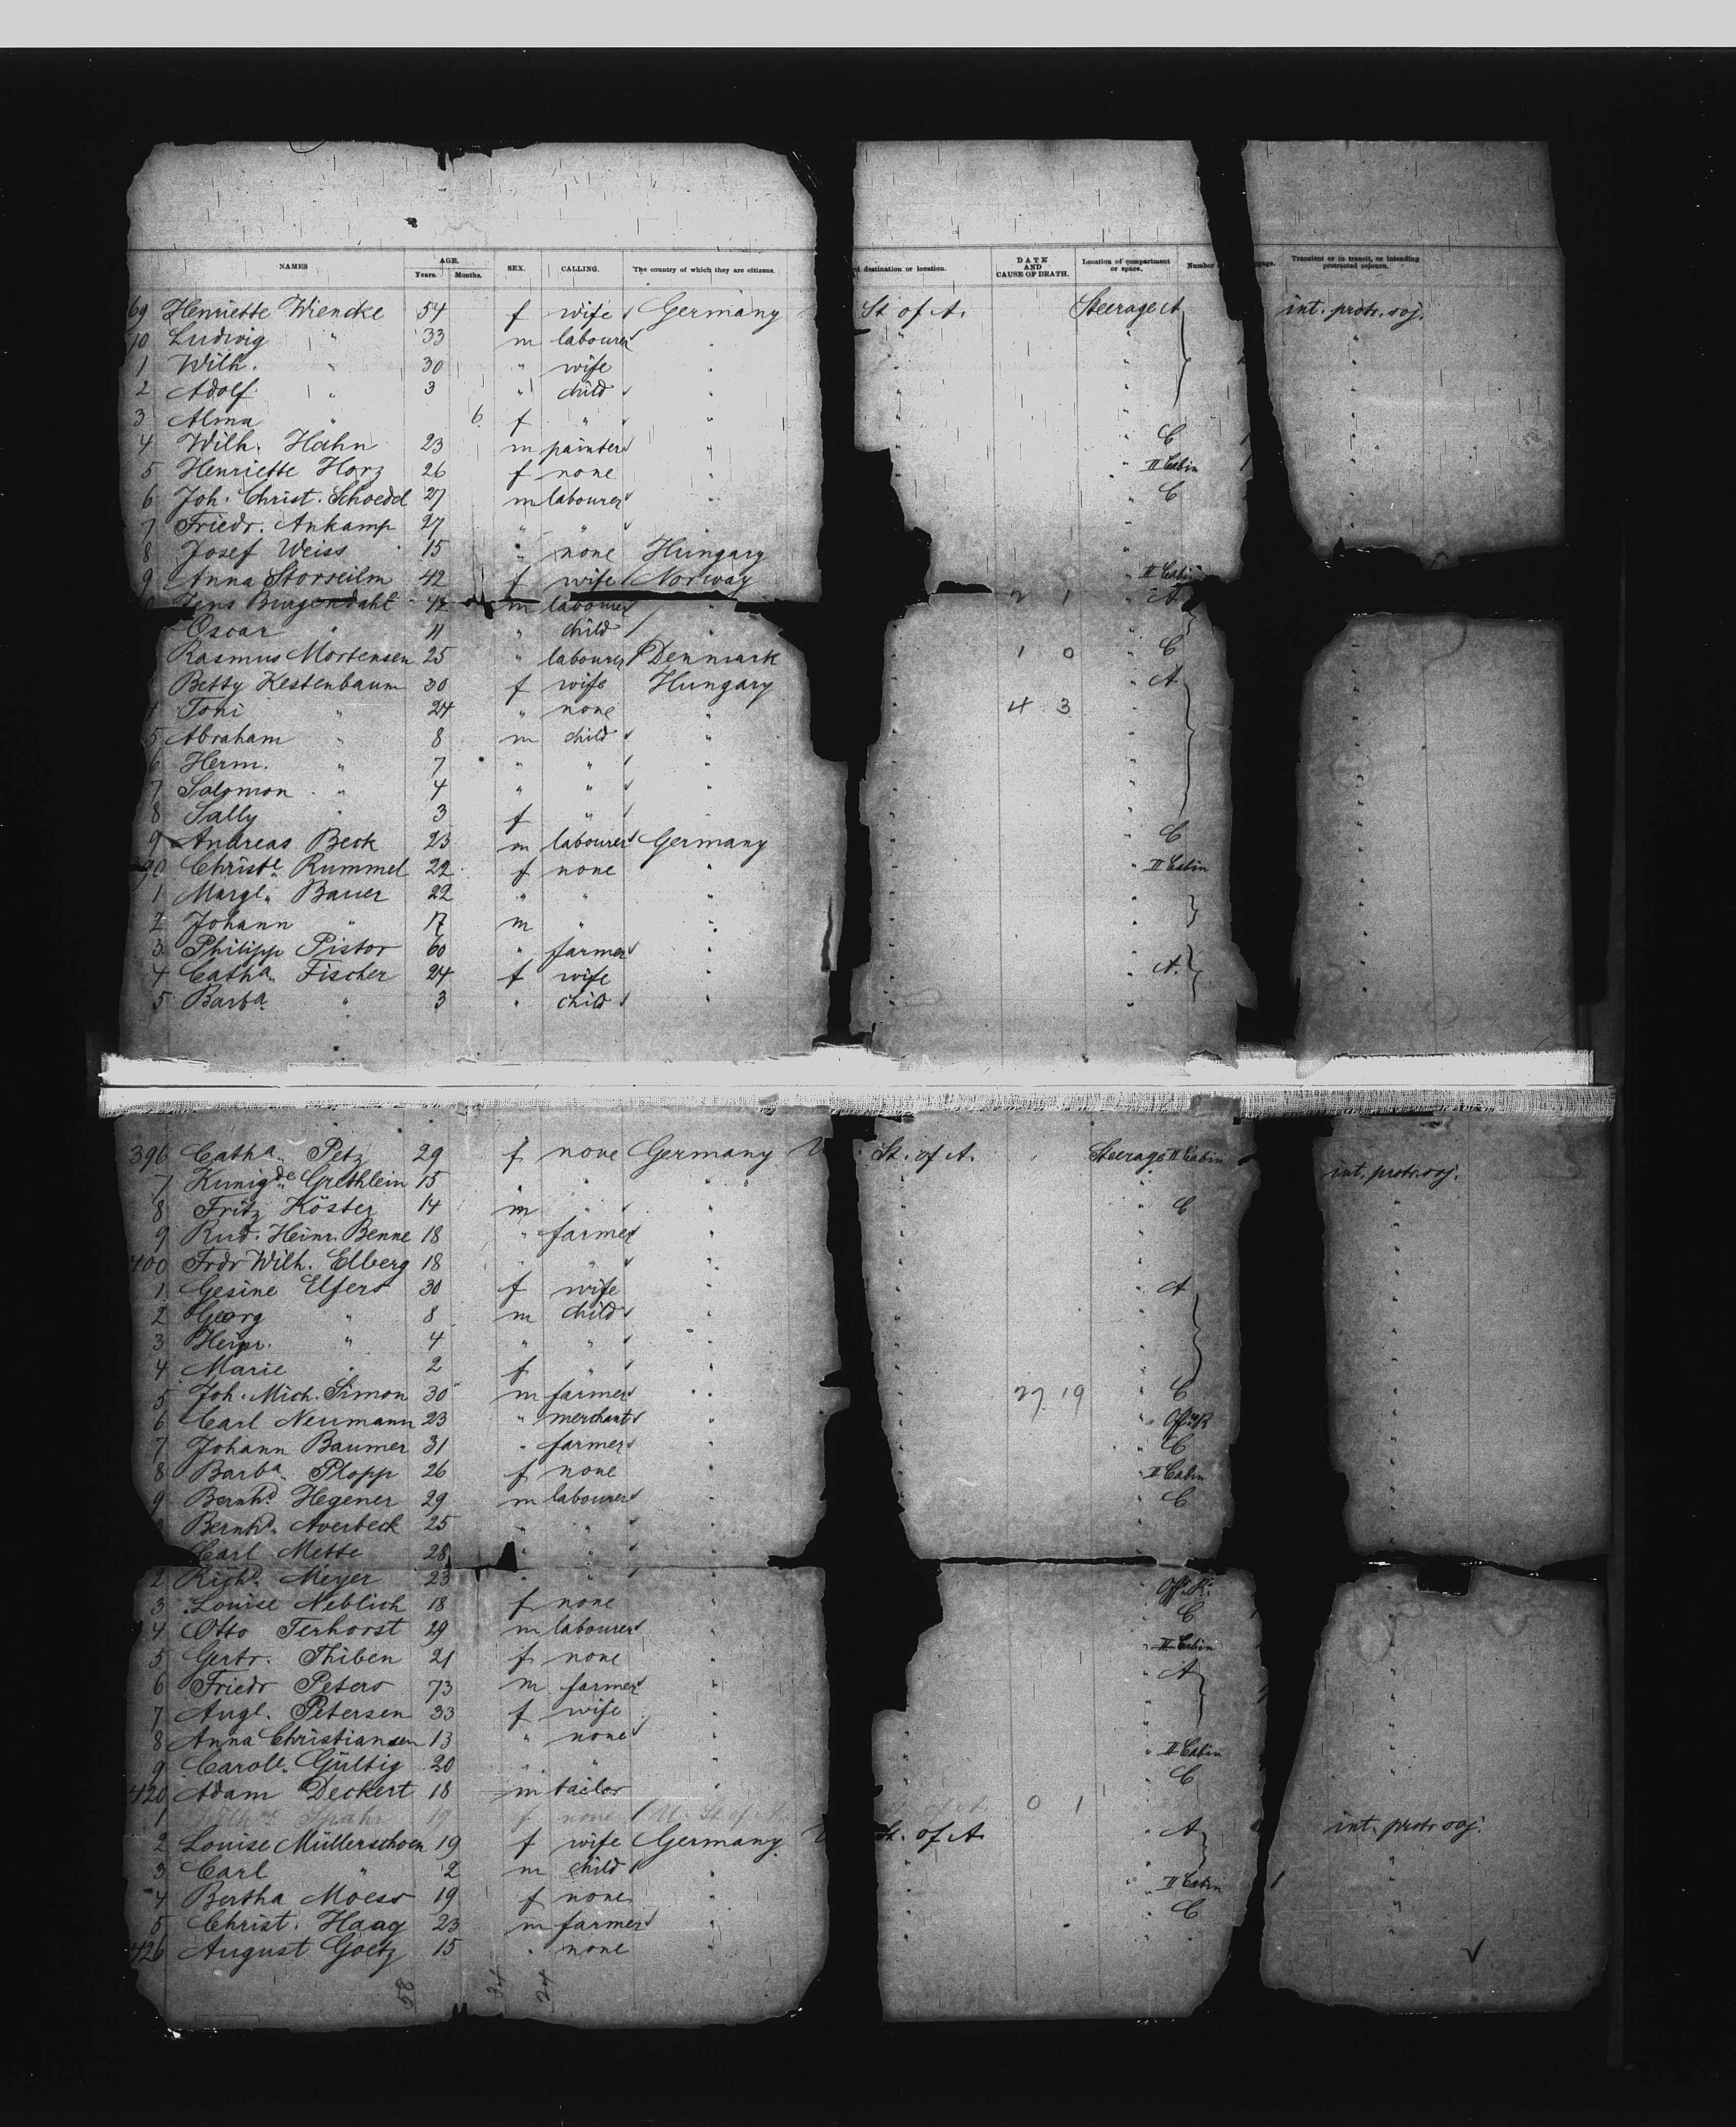 NAMES AGE. Years. Months. SEX. CALLING. The country of which they are citizens. d destination or location. DATE AND CAUSE OF DEATH. Location of compartment or space. Number gage. Transient or in transit, or intending protracted sojourn.
69 Henriette Wiencke 54 f wife Germany St of A. Steerage A int. protr. soj.
70 Ludwig " 33 m labourer "
1 Wilh. " 30 " wife "
2 Adolf " 3 " child "
3 Alma " 6 f " "
4 Wilh. Hahn 23 m painter " " C
5 Henriette Horz 26 f none " " II Cabin
6 Joh. Christ. Schoedel 27 m labourer " " C
7 Friedr. Ankamp 27 " " "
8 Josef Weiss 15 " none Hungary
9 Anna Storseilm 42 f wife Norway " II Cabin
Jens Burgendahl 42 m labourer " 2 1 " A
Oscar " 11 " child "
Rasmus Mortensen 25 " labourer Denmark 1 0 " C
Betty Kestenbaum 30 f wife Hungary " A
4 Toni " 24 " none " 4 3
5 Abraham " 8 m child "
6 Herm. " 7 " " "
7 Salomon " 4 " " "
8 Sally " 3 f " "
9 Andreas Beck 23 m labourer Germany " C
390 Christe. Rummel 22 f none " " II Cabin
1 Margt. Bauer 22 " " "
2 Johann " 17 m " "
3 Philipp Pistor 60 " farmer "
4 Catha. Fischer 24 f wife " " A.
5 Barba. " 3 " child "
396 Catha. Petz 29 f none Germany St. of A. Steerage II Cabin int. protr. soj.
7 Kunigde. Grethlein 15 " " "
8 Fritz Köster 14 m " " " C
9 Rud. Heinr. Benne 18 " farmer "
400 Frdr Wilh. Elberg 18 " " "
1 Gesine Elfers 30 f wife " " A
2 Georg " 8 m child "
3 Heinr. " 4 " " "
4 Marie " 2 f " "
5 Joh. Mich. Simon 30 m farmer " 27 19 " C
6 Carl Neumann 23 " merchant "
7 Johann Baumer 31 " farmer " " C
8 Barba. Plopp 26 f none " " II Cabin
9 Bernhd. Hegener 29 m labourer " " C
Bernhd. Averbeck 25 " " "
Carl Mette 28 " " "
2 Richd. Meyer 23 " " "
3 Louise Neblich 18 f none " " C
4 Otto Terhorst 29 m labourer " " II Cabin
5 Gertr. Thiben 21 f none " " A
6 Friedr Peters 73 m farmer "
7 Augt. Petersen 33 f wife "
8 Anna Christiansen 13 " none " " II Cabin
9 Carole. Gültig 20 " " " " C
420 Adam Deckert 18 m tailor "
1 Spahr 19 f none U. St of A. St of A. 0 1
2 Louise Müllerschoen 19 f wife Germany St. of A " A int. protr soj.
3 Carl " 2 m child "
4 Bertha Moess 19 f none " " II Cabin 1
5 Christ. Haag 23 m farmer " " C
426 August Goetz 15 " none "
58 34 24